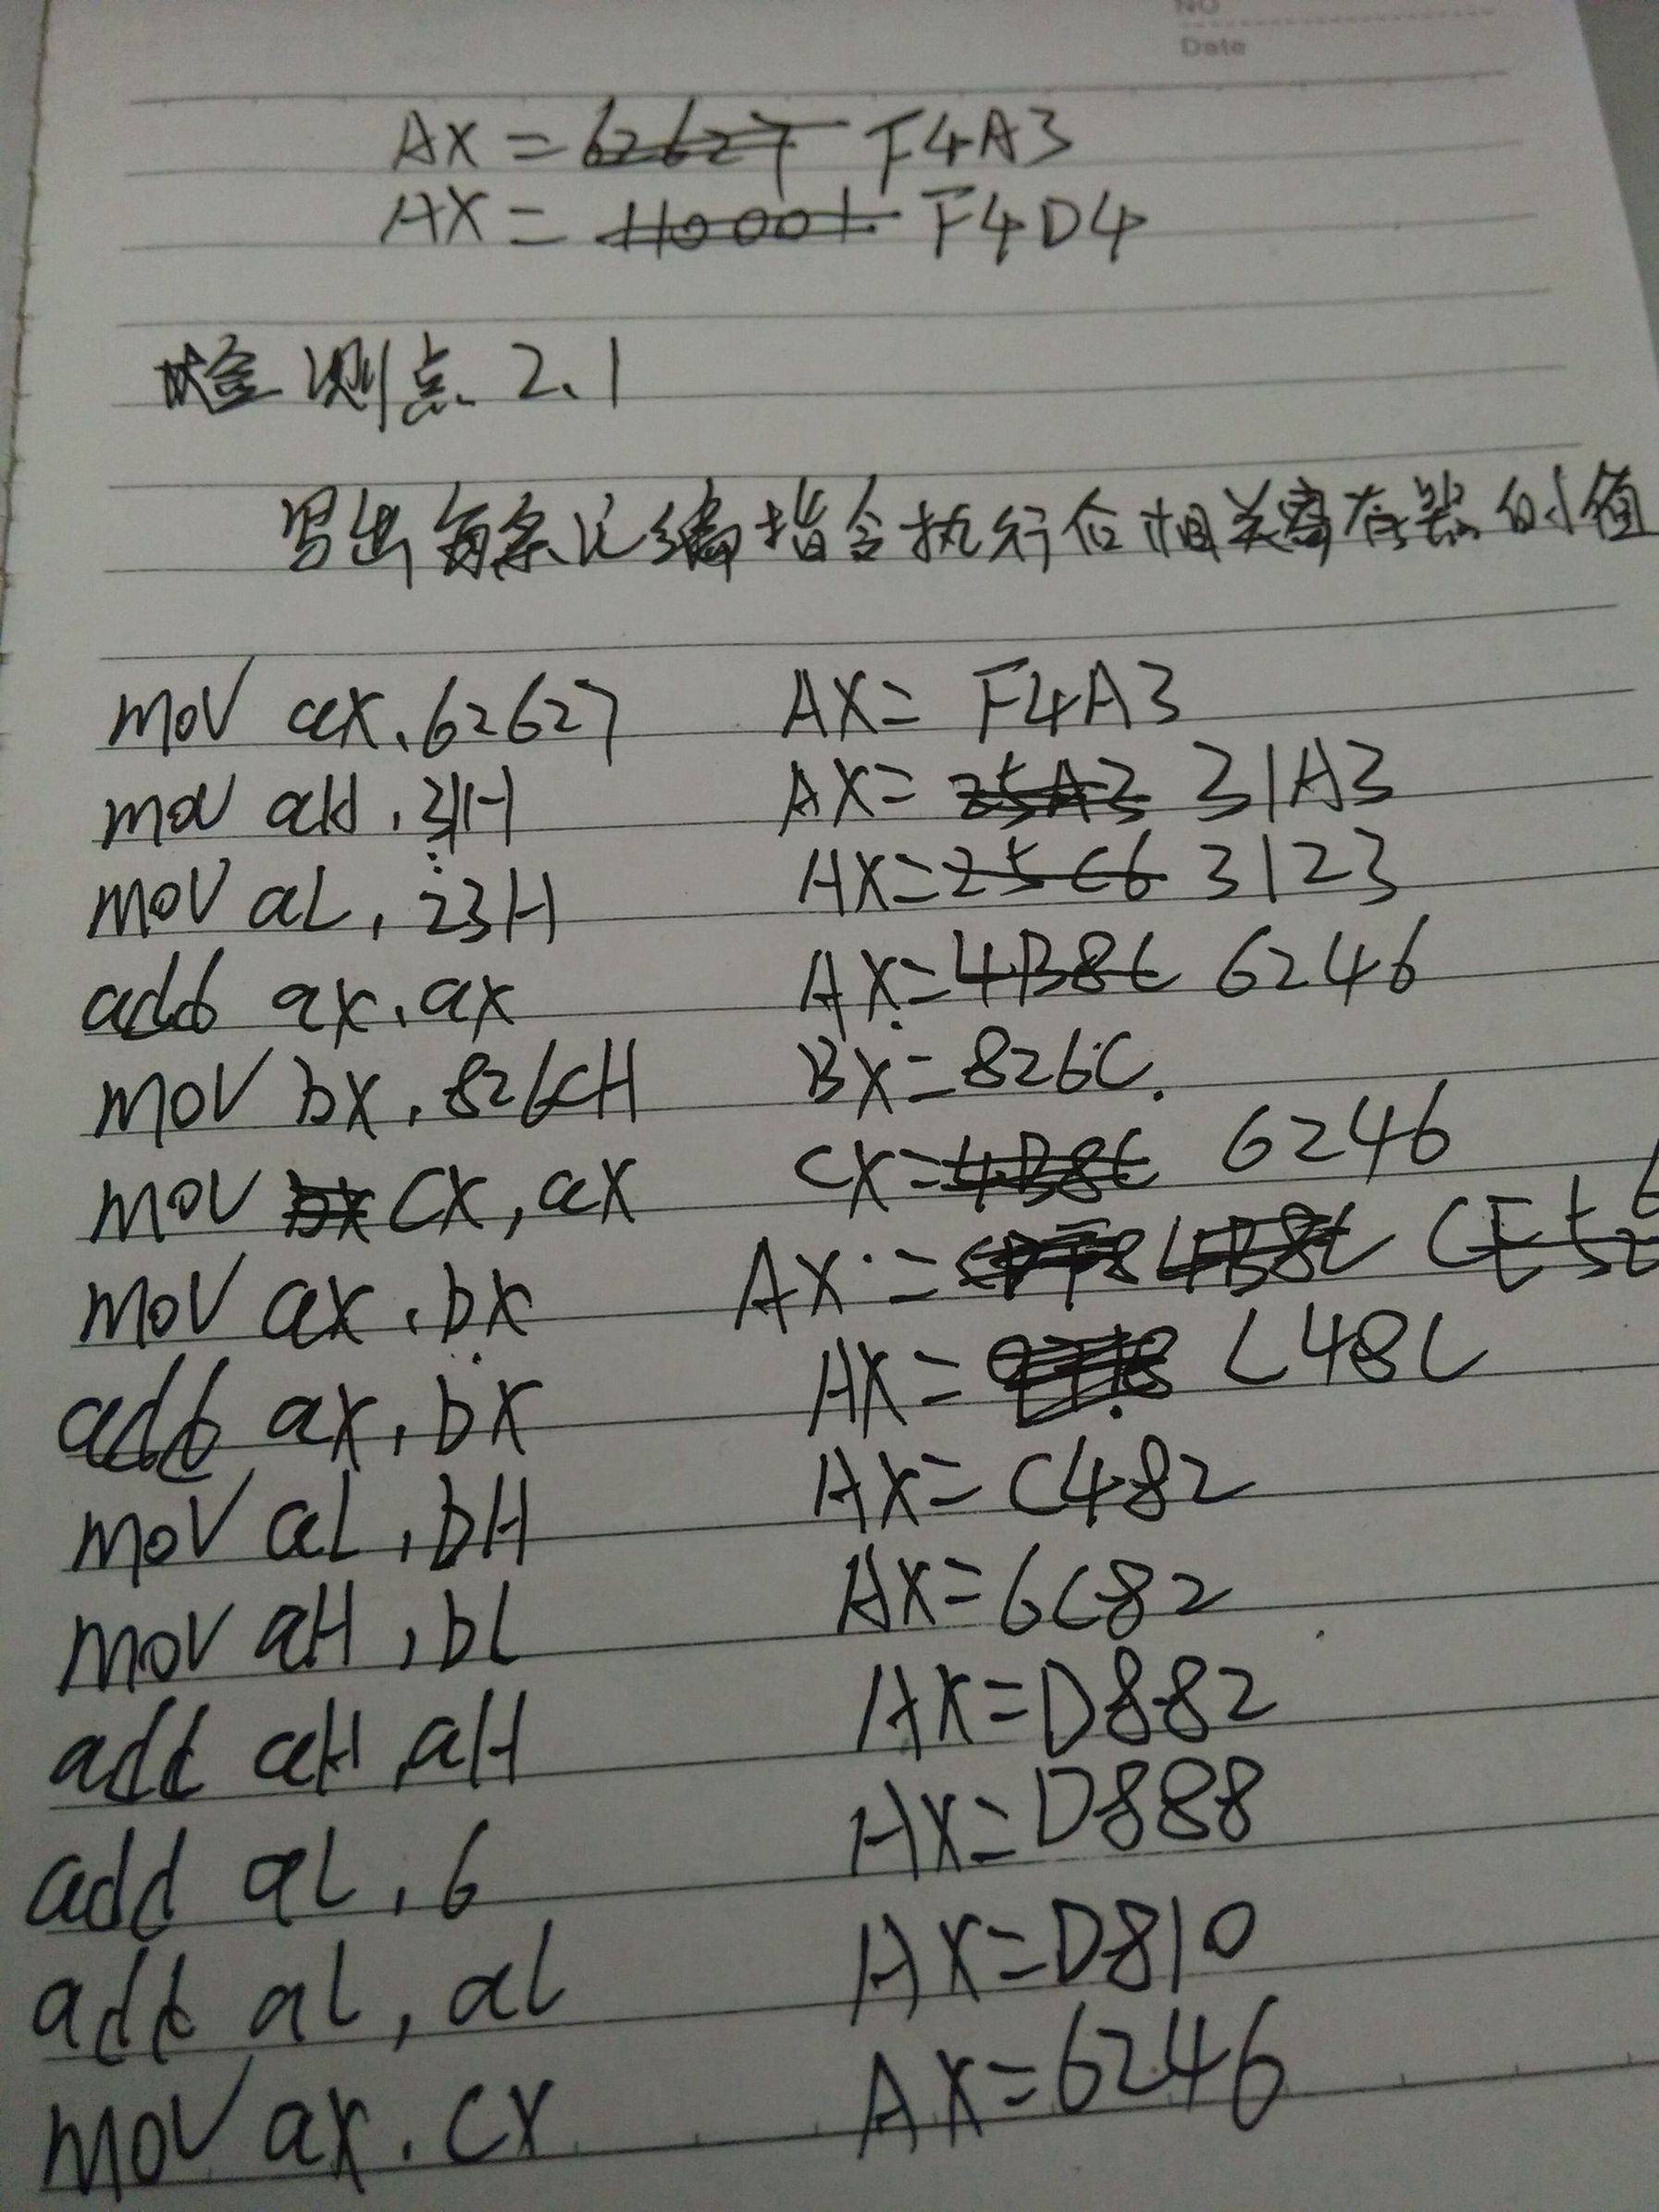 NO
Date
AX = 62627 F4A3
AX = 110001. F4D4
检测点 2.1
写出每条汇编指令执行后相关寄存器的值
mov ax,62627 AX= F4A3
mov aH,31H AX= 25A3 31A3
mov aL,23H AX=25C6 3123
add ax,ax AX=4B8C 6246
mov bx,826CH BX=826C.
mov bx CX,ax CX=4B8C 6246
mov ax,bx AX= 4B8C
add ax,bx AX= C48C
mov aL,bH AX=C482
mov aH,bL AX=6C82
add aH,aH AX=D882
add aL,6 AX=D888
add aL,aL AX=D810
mov ax.CX AX=6246